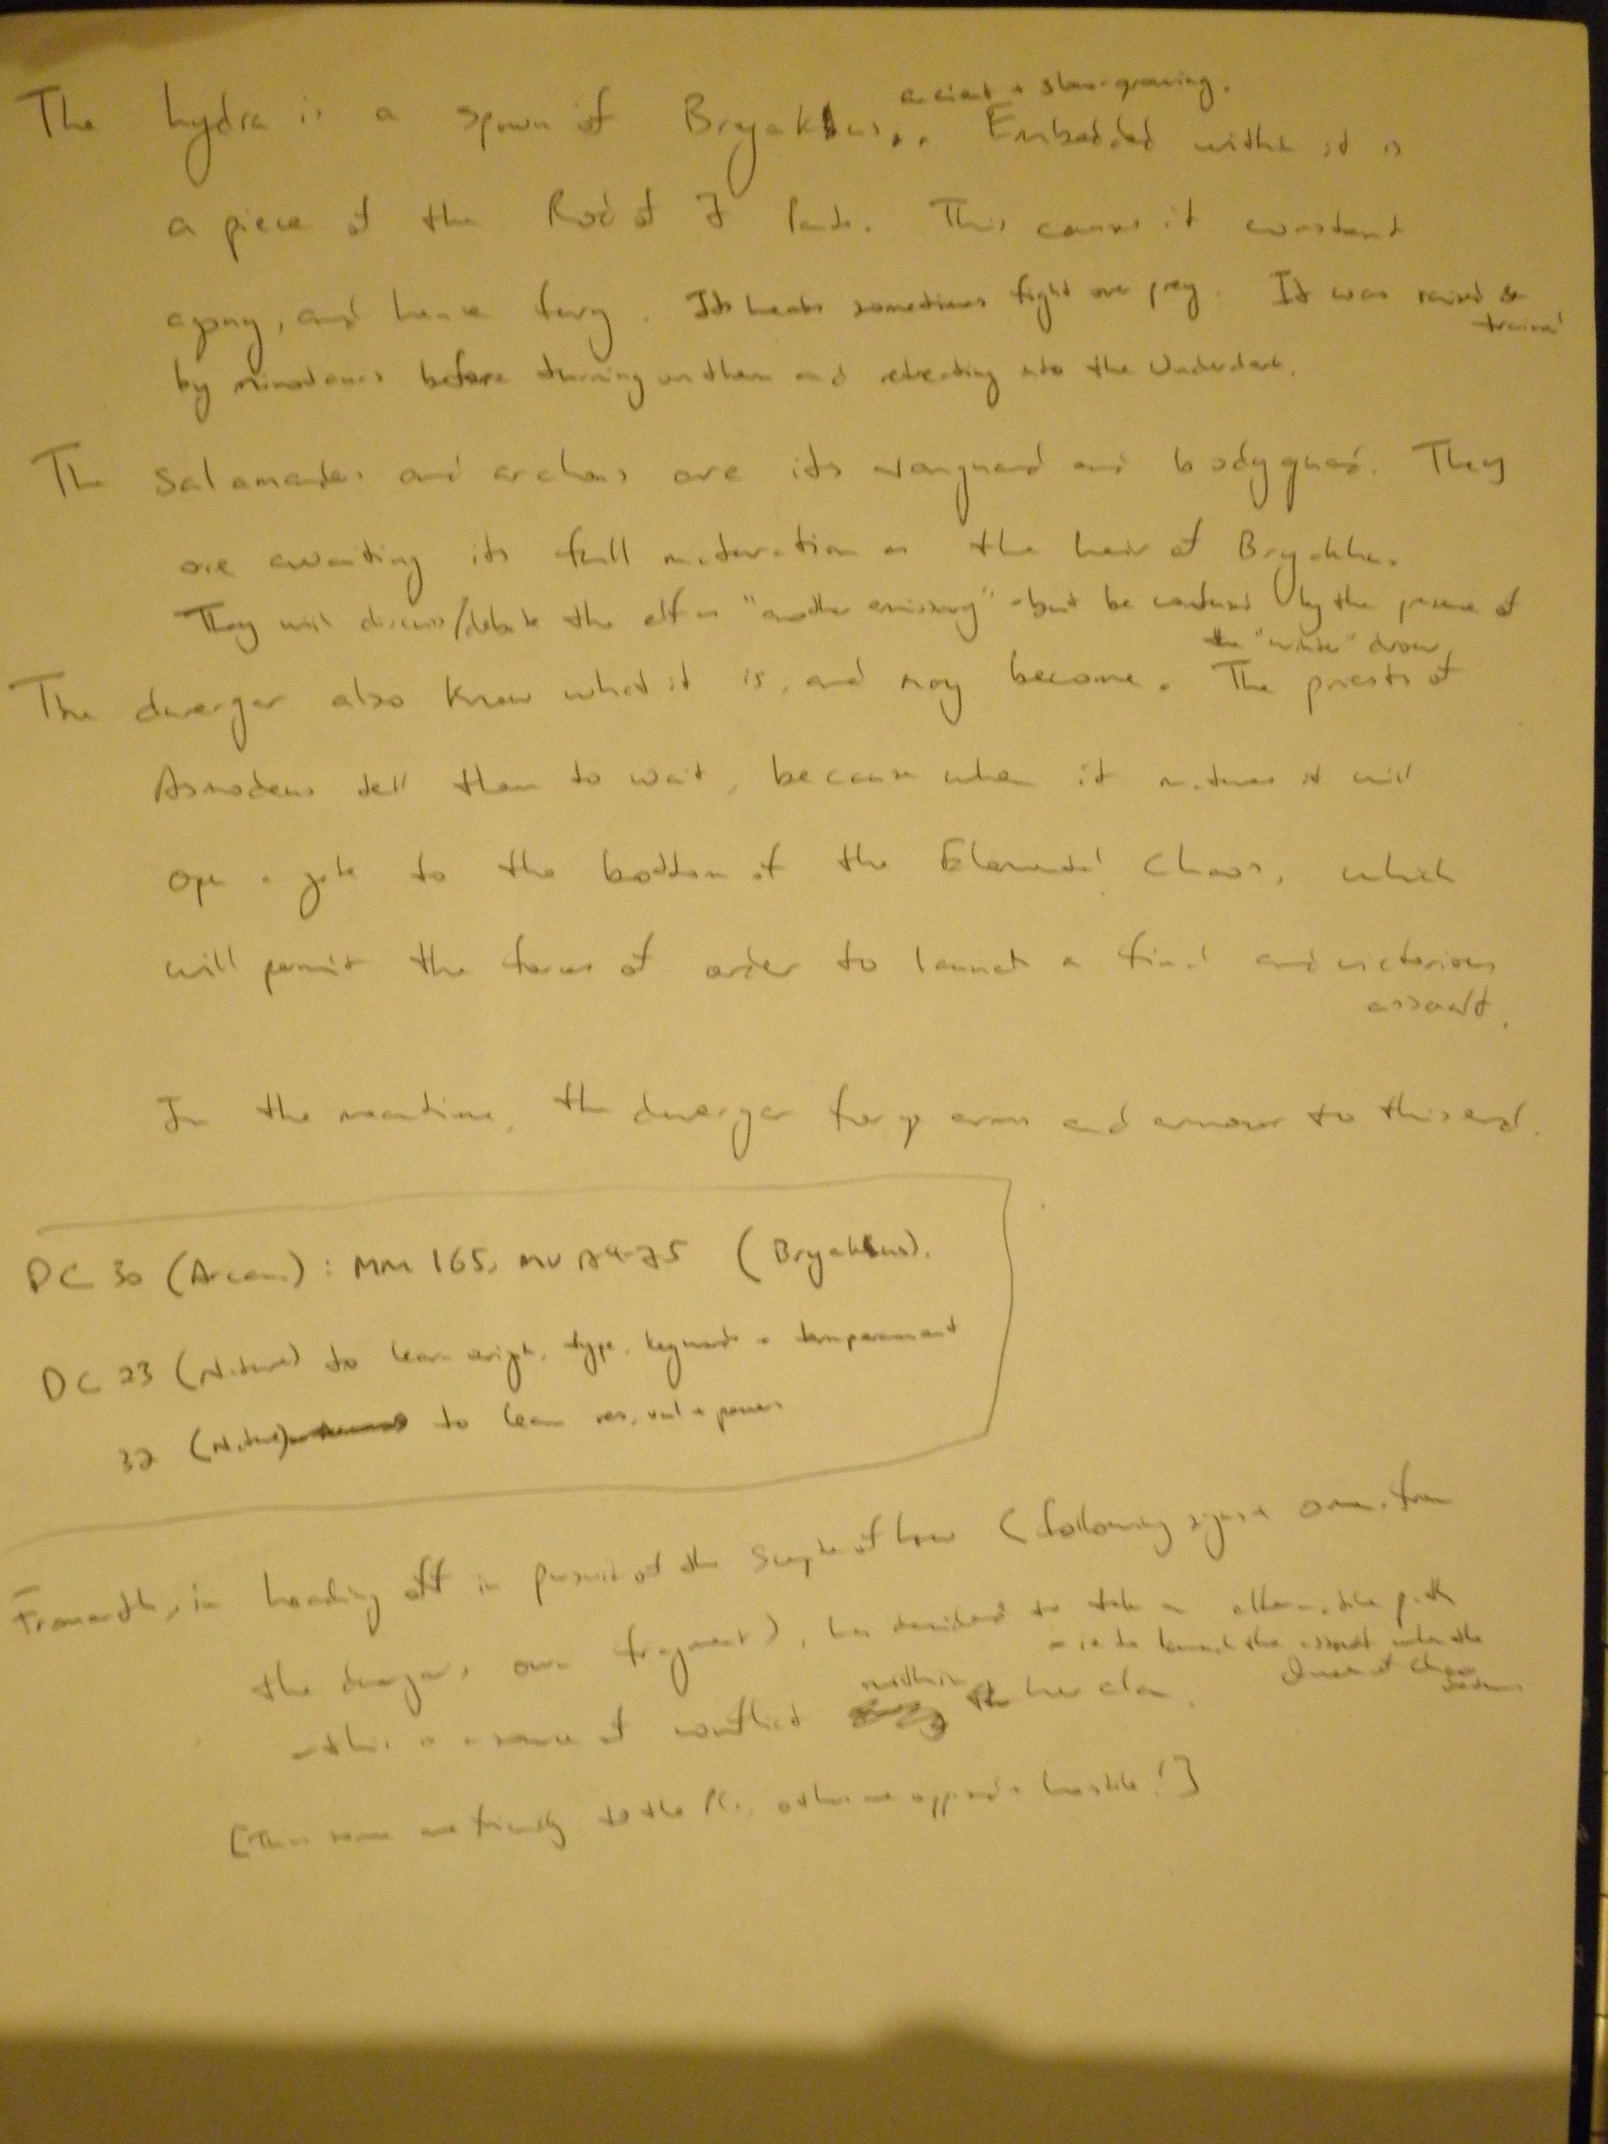 ancient + slow-growing.
The hydra is a spawn of Bryakhus.. Embedded within it is
a piece of the Rod of 7 Parts. This causes it constant
agony, and hence fury. Its heads sometimes fight over prey. It was raised &
trained
by minotaurs before turning on them and retreating into the Underdark.
The salamanders and archons are its vanguard and bodyguard. They
are awaiting its full maturation as the heir of Bryakhus.
They will discuss/debate the elf as "another emissary" - but be confused by the presence of
the "white" drow.
The duergar also know what it is, and may become. The priests of
Asmodeus tell them to wait, because when it matures it will
open a gate to the bottom of the Elemental Chaos, which
will permit the forces of order to launch a final and victorious
assault.
In the meantime, the duergar forge arms and armour to this end.
DC 30 (Arcana): MM 165, MV 74-75 (Bryakhus).
DC 23 (Nature) to learn origin, type, keywords + temperament
32 (Nature) to learn res, vul + powers
Framarth, in heading off in pursuit of the Sceptre of Law (following signs + omens from
the duergars' own fragment), has decided to take an alternative path
- ie to launch the assault when the
Queen of Chaos
- this is a source of conflict within her clan.
[Thus some are friendly to the PCs, others are opposed + hostile!]